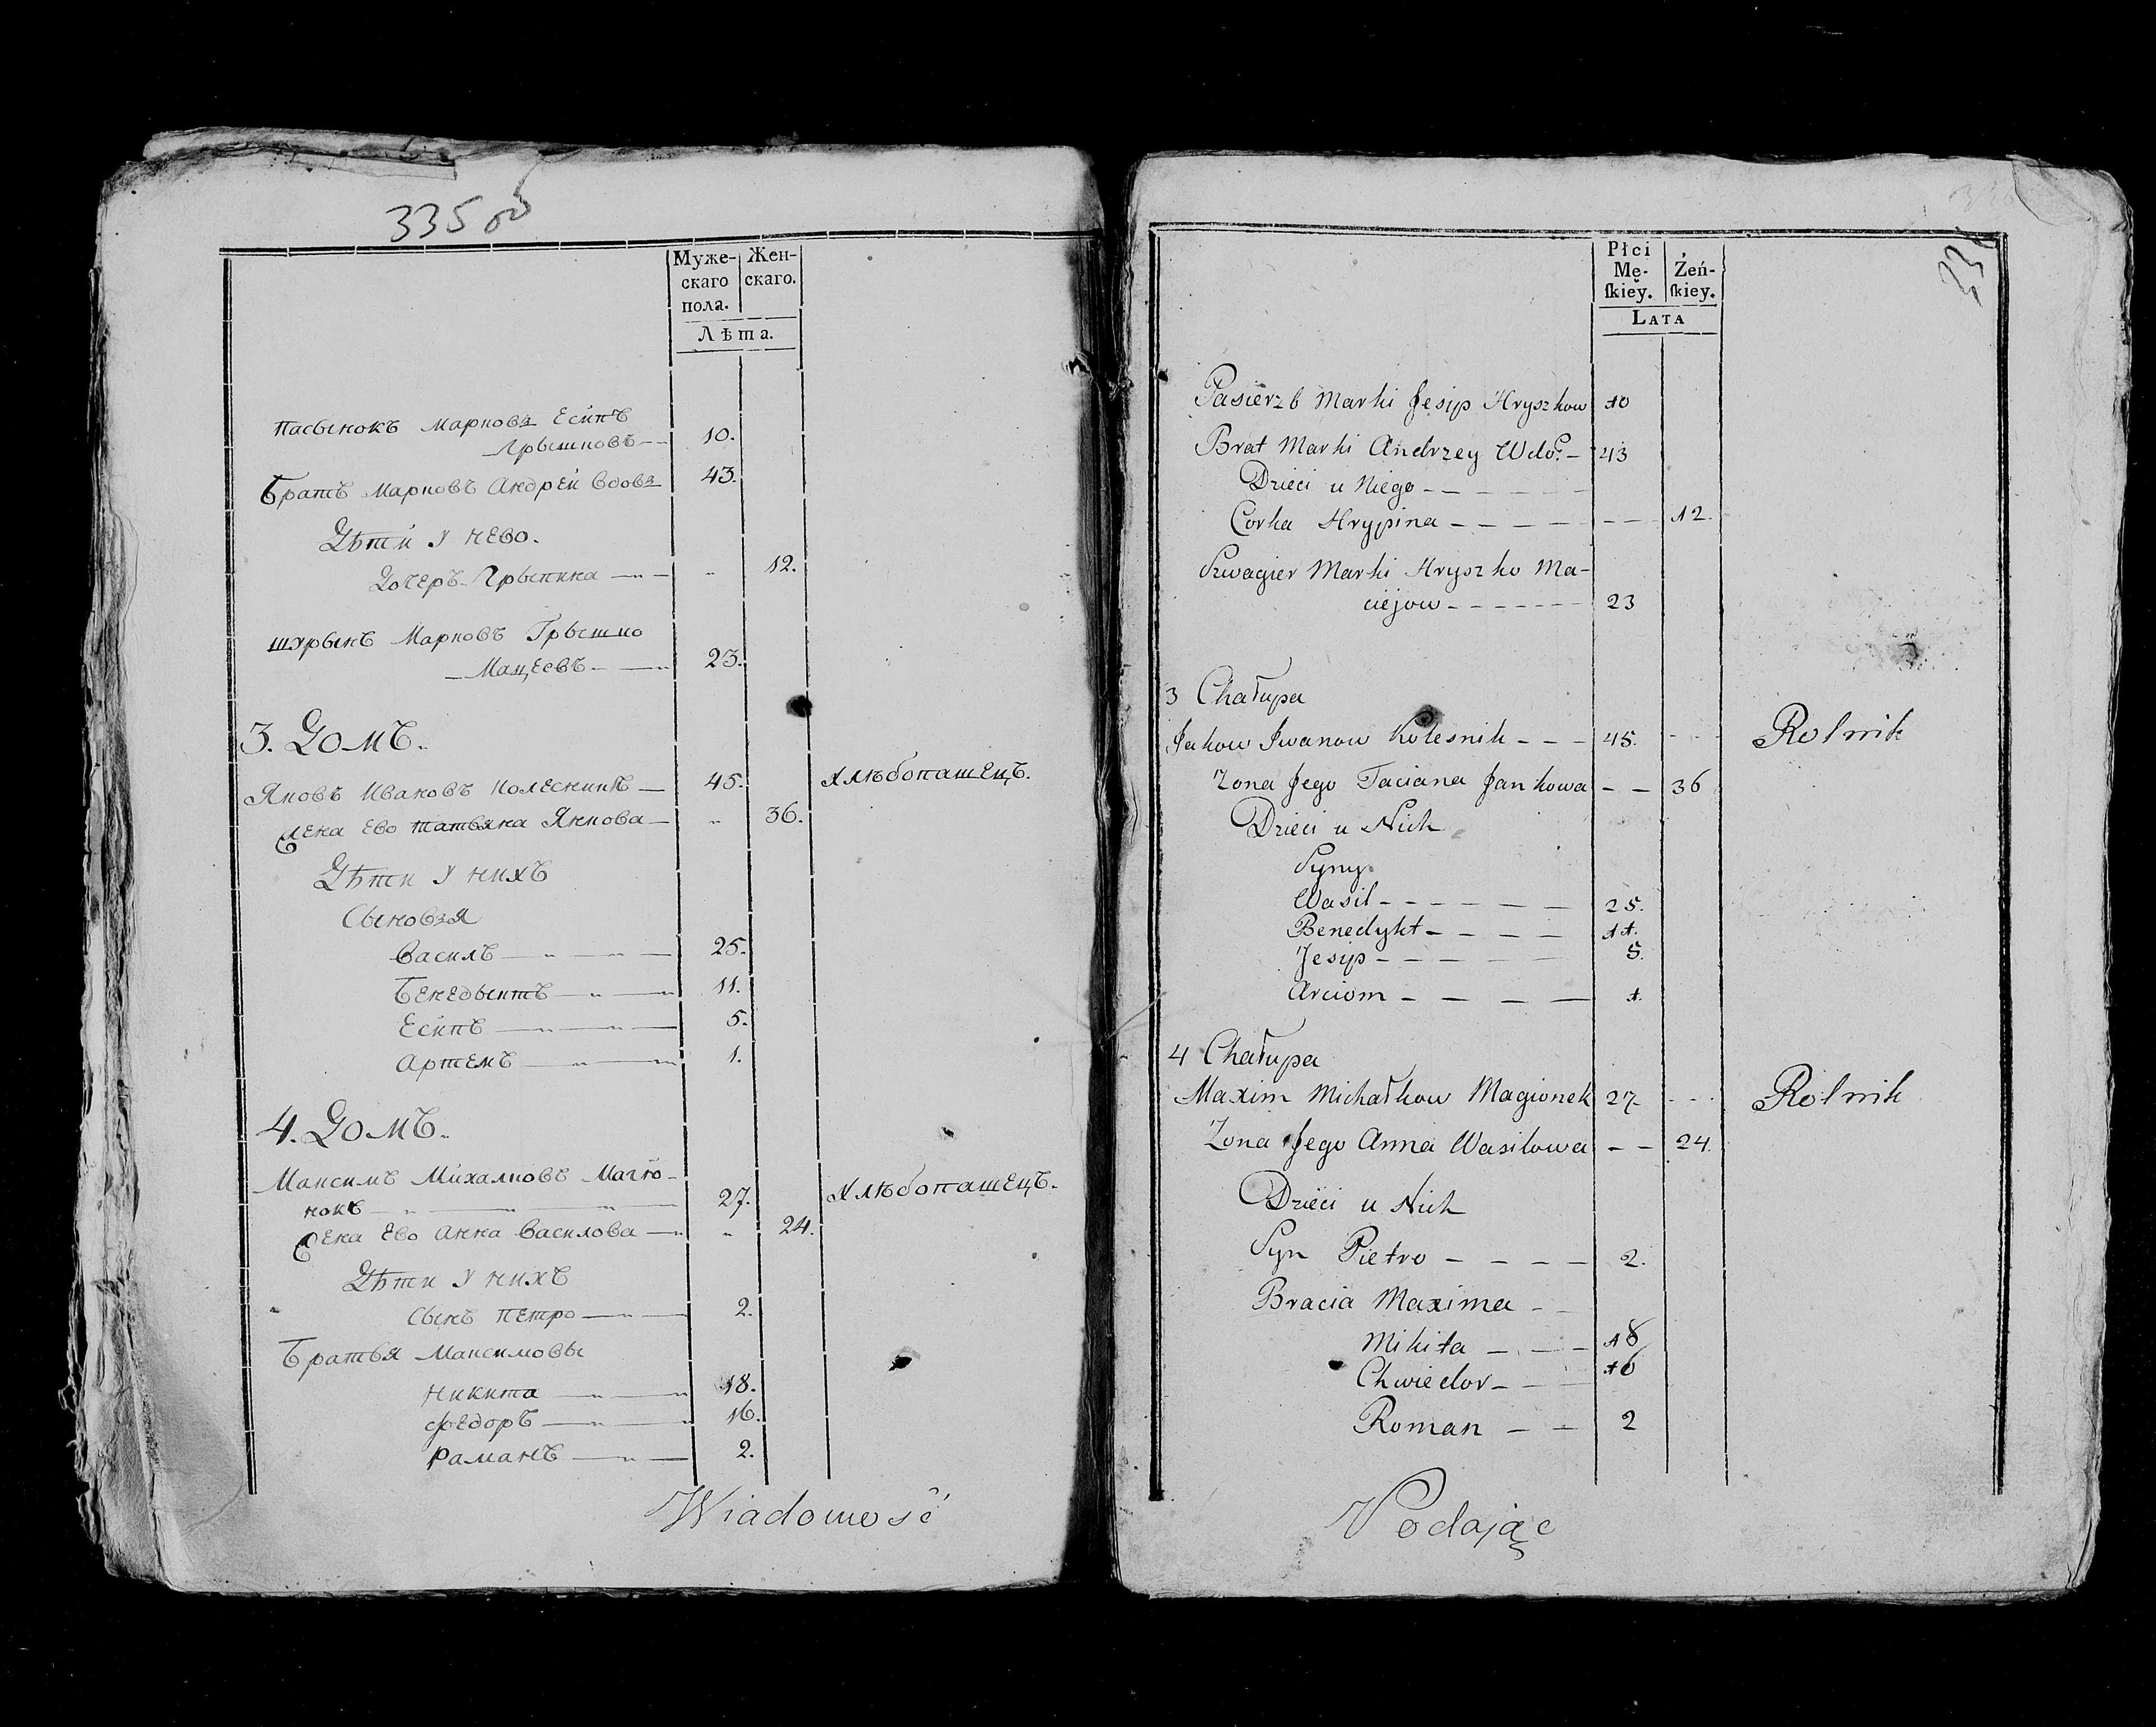 335 об
Муже-
скаго
пола.
Жен-
скаго.
Лѣта.
Пасынокъ Марковъ Есипъ
Грышковъ 10.
Братъ Марковъ Андрей вдовъ 43.
Дѣти у нево.
Дочеръ Грыпина 12.
Шурынъ Марковъ Грышко
Мацеевъ 23.
3. Домъ.
Яковъ Ивановъ Колесникъ 45. хлѣбопашецъ.
Жена ево татьяна Янкова 36.
Дѣти у нихъ
Сыновья
Василъ 25.
Бенедыктъ 11.
Есипъ 5.
Артемъ 1.
4. Домъ.
Максимъ Михалковъ Магіо-
нокъ 27. хлѣбопашецъ.
Жена ево Анна Василова 24.
Дѣти у нихъ
Сынъ Петро 2.
Братья Максимовы
Никита 18.
Федоръ 16.
Раманъ 2.
Wiadomość
Płci
Mę-
ſkiey.
Żeń-
ſkiey.
Lata
Pasierzb Marki Jesip Hryszkow 10
Brat Marki Andrzey Wdo: 43
Dzieci u Niego
Corka Hrypina 12.
Szwagier Marki Hryszko Ma-
ciejow 23
3 Chałupa
Jakow Jwanow Kolesnik 45. Rolnik
Zona Jego Taciana Jankowa 36
Dzieci u Nich
Syny
Wasil 25.
Benedykt 11.
Jesip 5.
Arciom 1.
4 Chałupa
Maxim Michałkow Magionek 27 Rolnik
Zona Jego Anna Wasilowa 24.
Dzieci u Nich
Syn Pietro 2.
Bracia Maxima
Mikita 18
Chwiedor 16
Roman 2
Podając